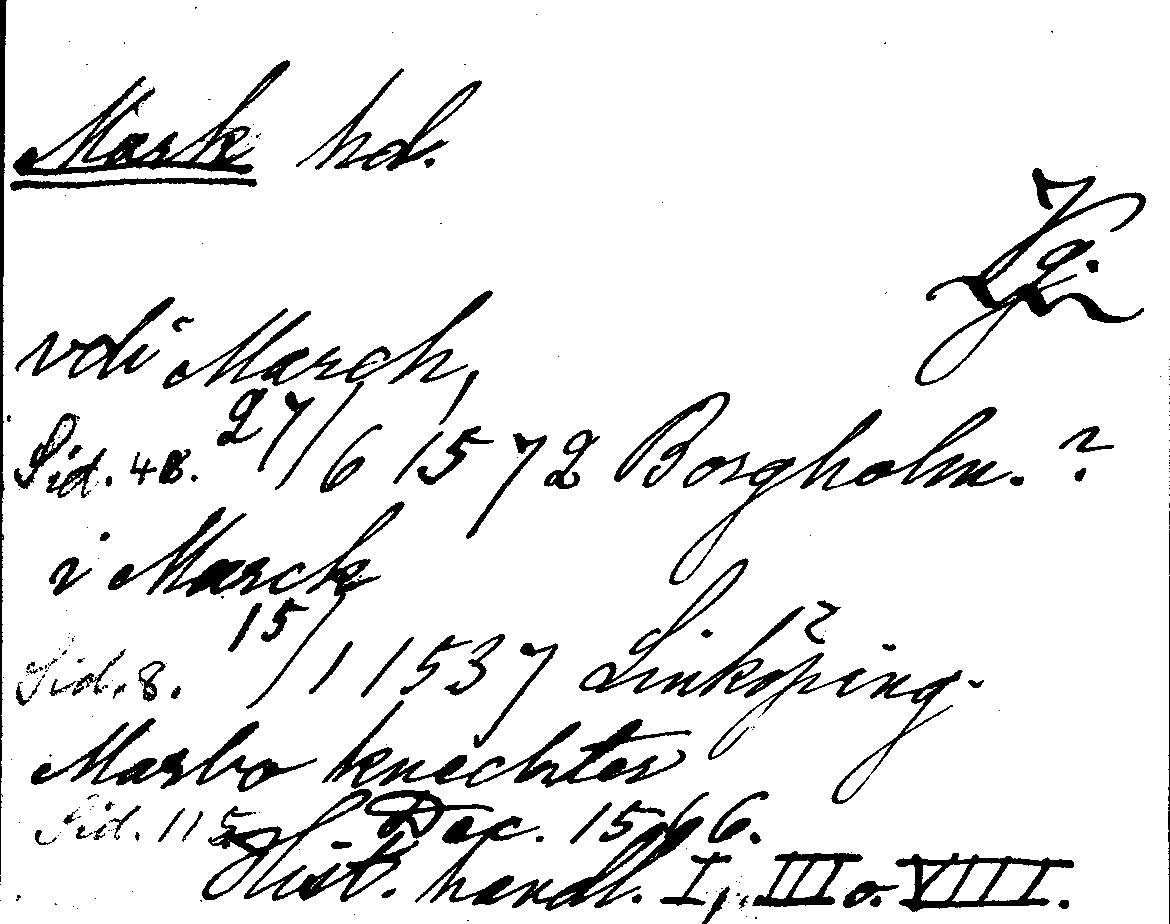 Mark hd.
Vg.
vdi March,
Sid. 48. 27/6 1572 Borgholm. ?
i Marck
Sid. 8. 15/1 1537 Linköping.
Marbo knechter
Sid. 115 Dec. 1566.
Hist. handl. I, III o. VIII.